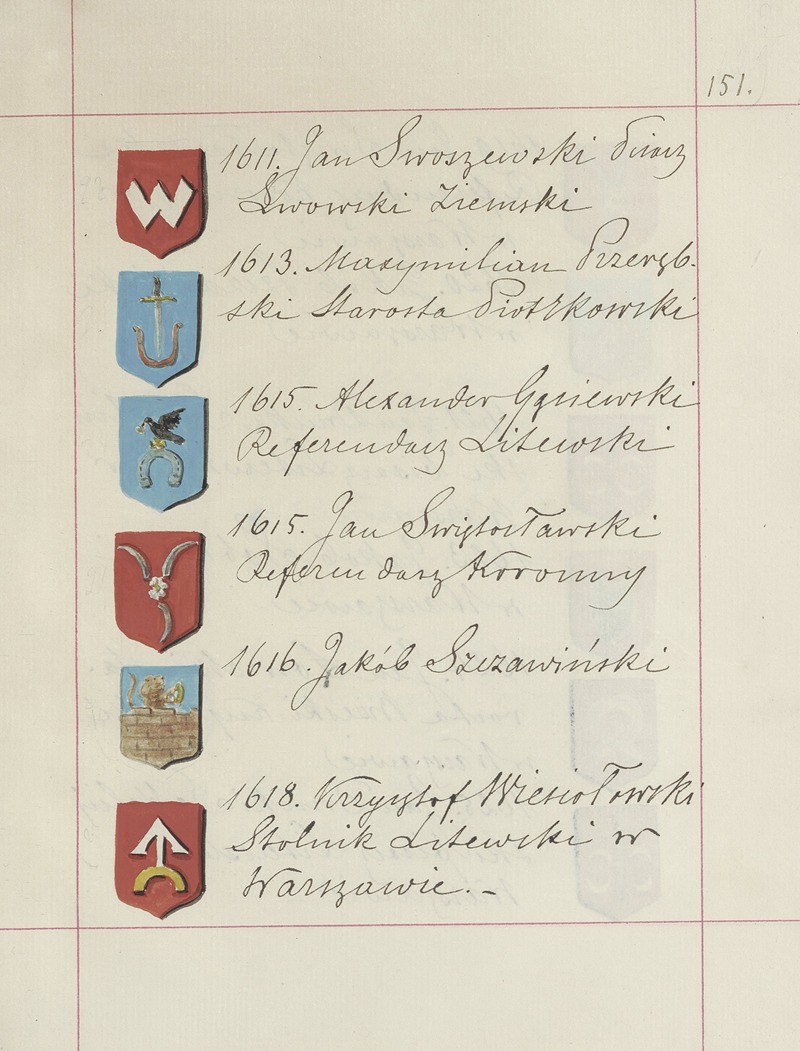 151.
1611. Jan Swoszewski Pisarz
Lwowski Ziemski
1613. Maxymilian Przeręb-
ski Starosta Piotrkowski
1615. Alexander Gąsiewski
Referendarz Litewski
1615. Jan Swiętosławski
Referendarz Koronny
1616. Jakób Szczawiński
1618. Krzysztof Wiesiołowski
Stolnik Litewski w
Warszawie. –